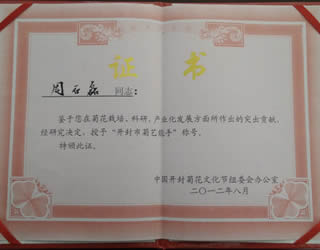 证 书
周石磊 同志：
鉴于您在菊花栽培、科研、产业化发展方面所作出的突出贡献，
经研究决定，授予“开封市菊艺能手”称号。
特颁此证。
中国开封菊花文化节组委会办公室
二〇一二年八月